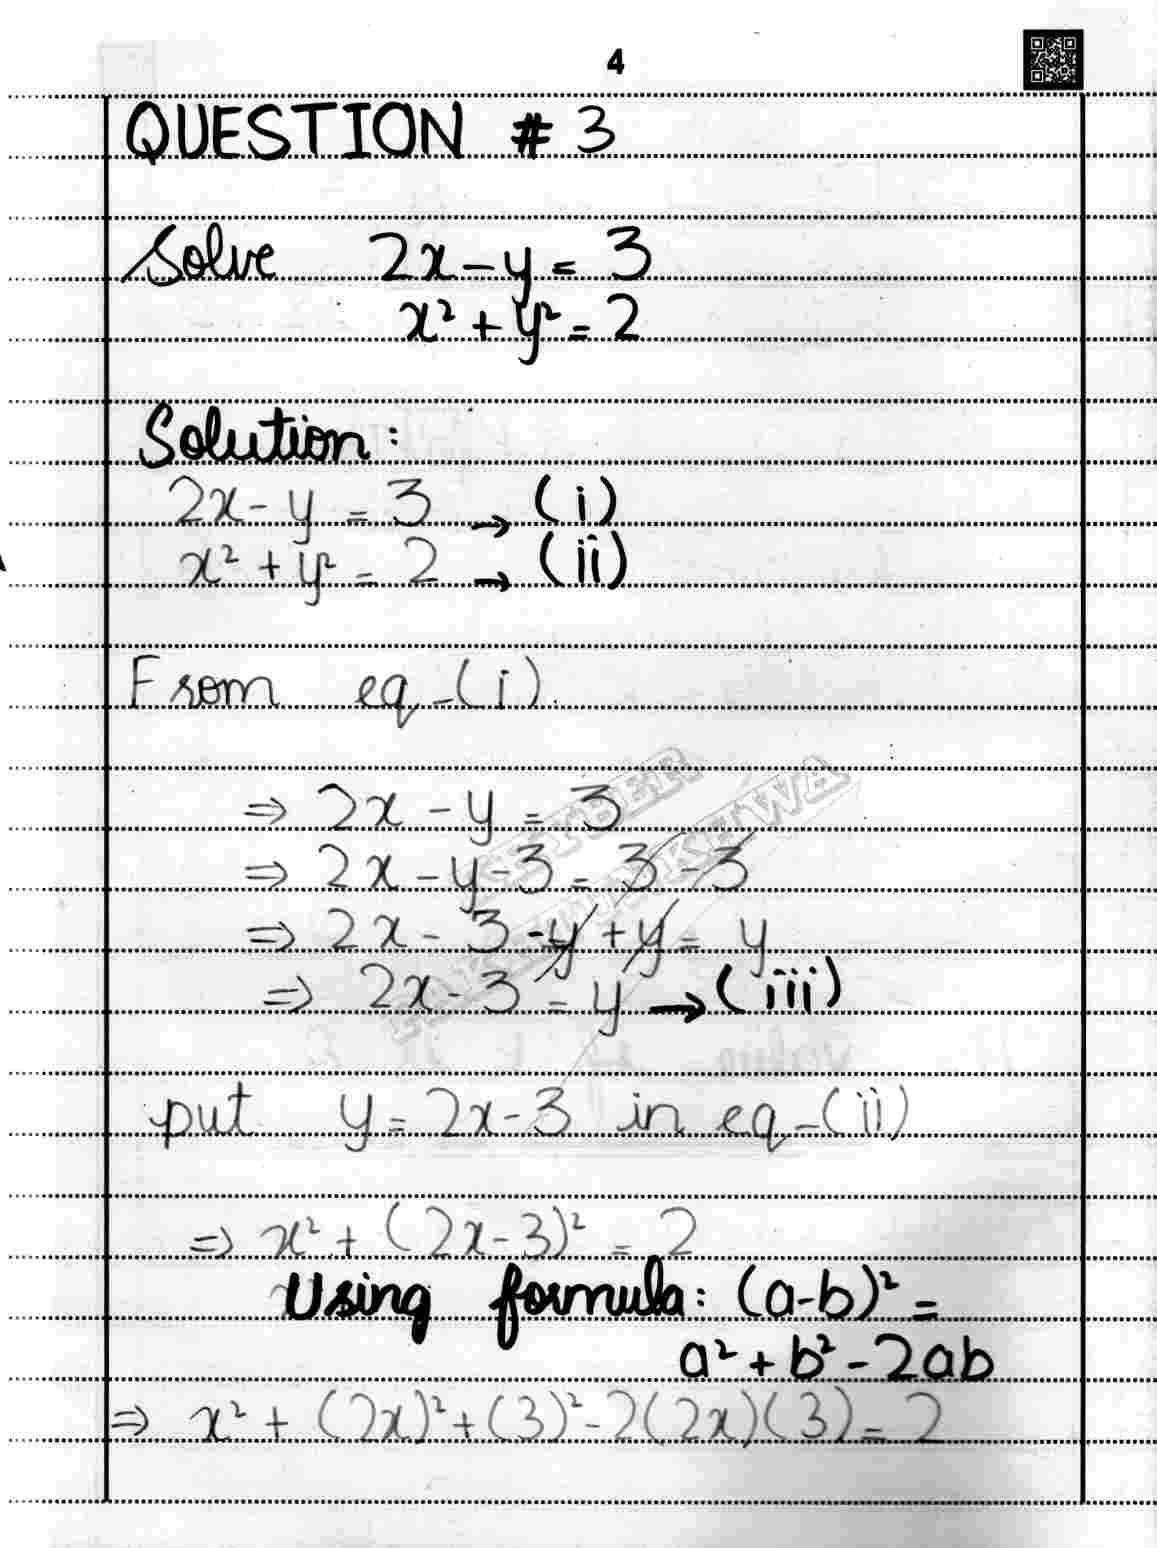 4
QUESTION # 3
Solve 2x - y = 3
x² + y² = 2
Solution:
2x - y = 3 → (i)
x² + y² = 2 → (ii)
From eq-(i).
⇒ 2x - y = 3
⇒ 2x - y - 3 = 3 - 3
⇒ 2x - 3 - y + y = y
⇒ 2x - 3 = y → (iii)
put y = 2x - 3 in eq-(ii)
⇒ x² + (2x - 3)² = 2
Using formula: (a-b)² =
a² + b² - 2ab
⇒ x² + (2x)² + (3)² - 2(2x)(3) = 2